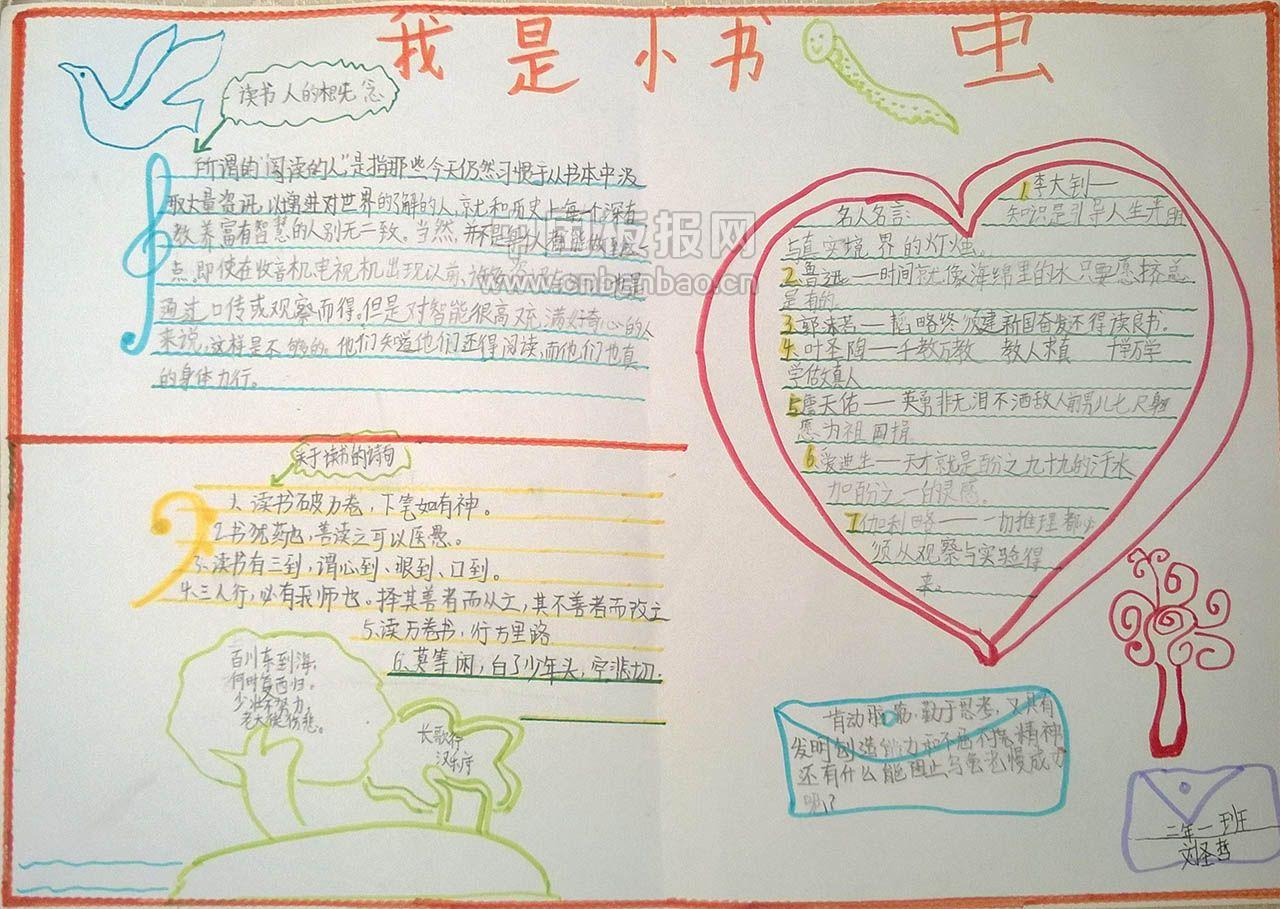 我是小书虫
读书人的想先念
所谓的"阅读的人"是指那些今天仍然习惯于从书本中汲
取大量资讯,以增进对世界的了解的人,就和历史上每一个深有
教养富有智慧的人别无二致。当然,并不是每个人都能做到这
点。即使在收音机电视机出现以前,许多资讯与
通过口传或观察而得。但是对智能很高充满好奇心的人
来说,这样是不够的。他们知道他们还得阅读,而他们也真
的身体力行。
中国板报网
www.cnbanbao.cn
关于读书的诗句
1.读书破万卷,下笔如有神。
2书犹药也,善读之可以医愚。
3、读书有三到,谓心到、眼到、口到。
4.三人行,必有我师也。择其善者而从之,其不善者而改之
5.读万卷书,行万里路
6、莫等闲,白了少年头,空悲切.
百川东到海,
何时复西归。
少壮不努力,
老大徒伤悲。
长歌行
汉乐府
名人名言:
1李大钊——
知识是引导人生光明
与真实境界的灯烛。
2鲁迅——时间就像海绵里的水只要愿挤总
是有的
3郭沫若——韬略终须建新国奋发还得读良书。
4、叶圣陶——千教万教 教人求真 千学万学
学做真人
5詹天佑——英勇非无泪不洒敌人前男儿七尺躯
愿为祖国捐
6.爱迪生——天才就是百分之九十九的汗水
加百分之一的灵感。
7伽利略——一切推理都必
须从观察与实验得
来。
肯动脑筋,勤于思考,又具有
发明创造能力和不屈不挠精神
还有什么能阻止乌龟老慢成功
呢?
二年一班
刘圣哲